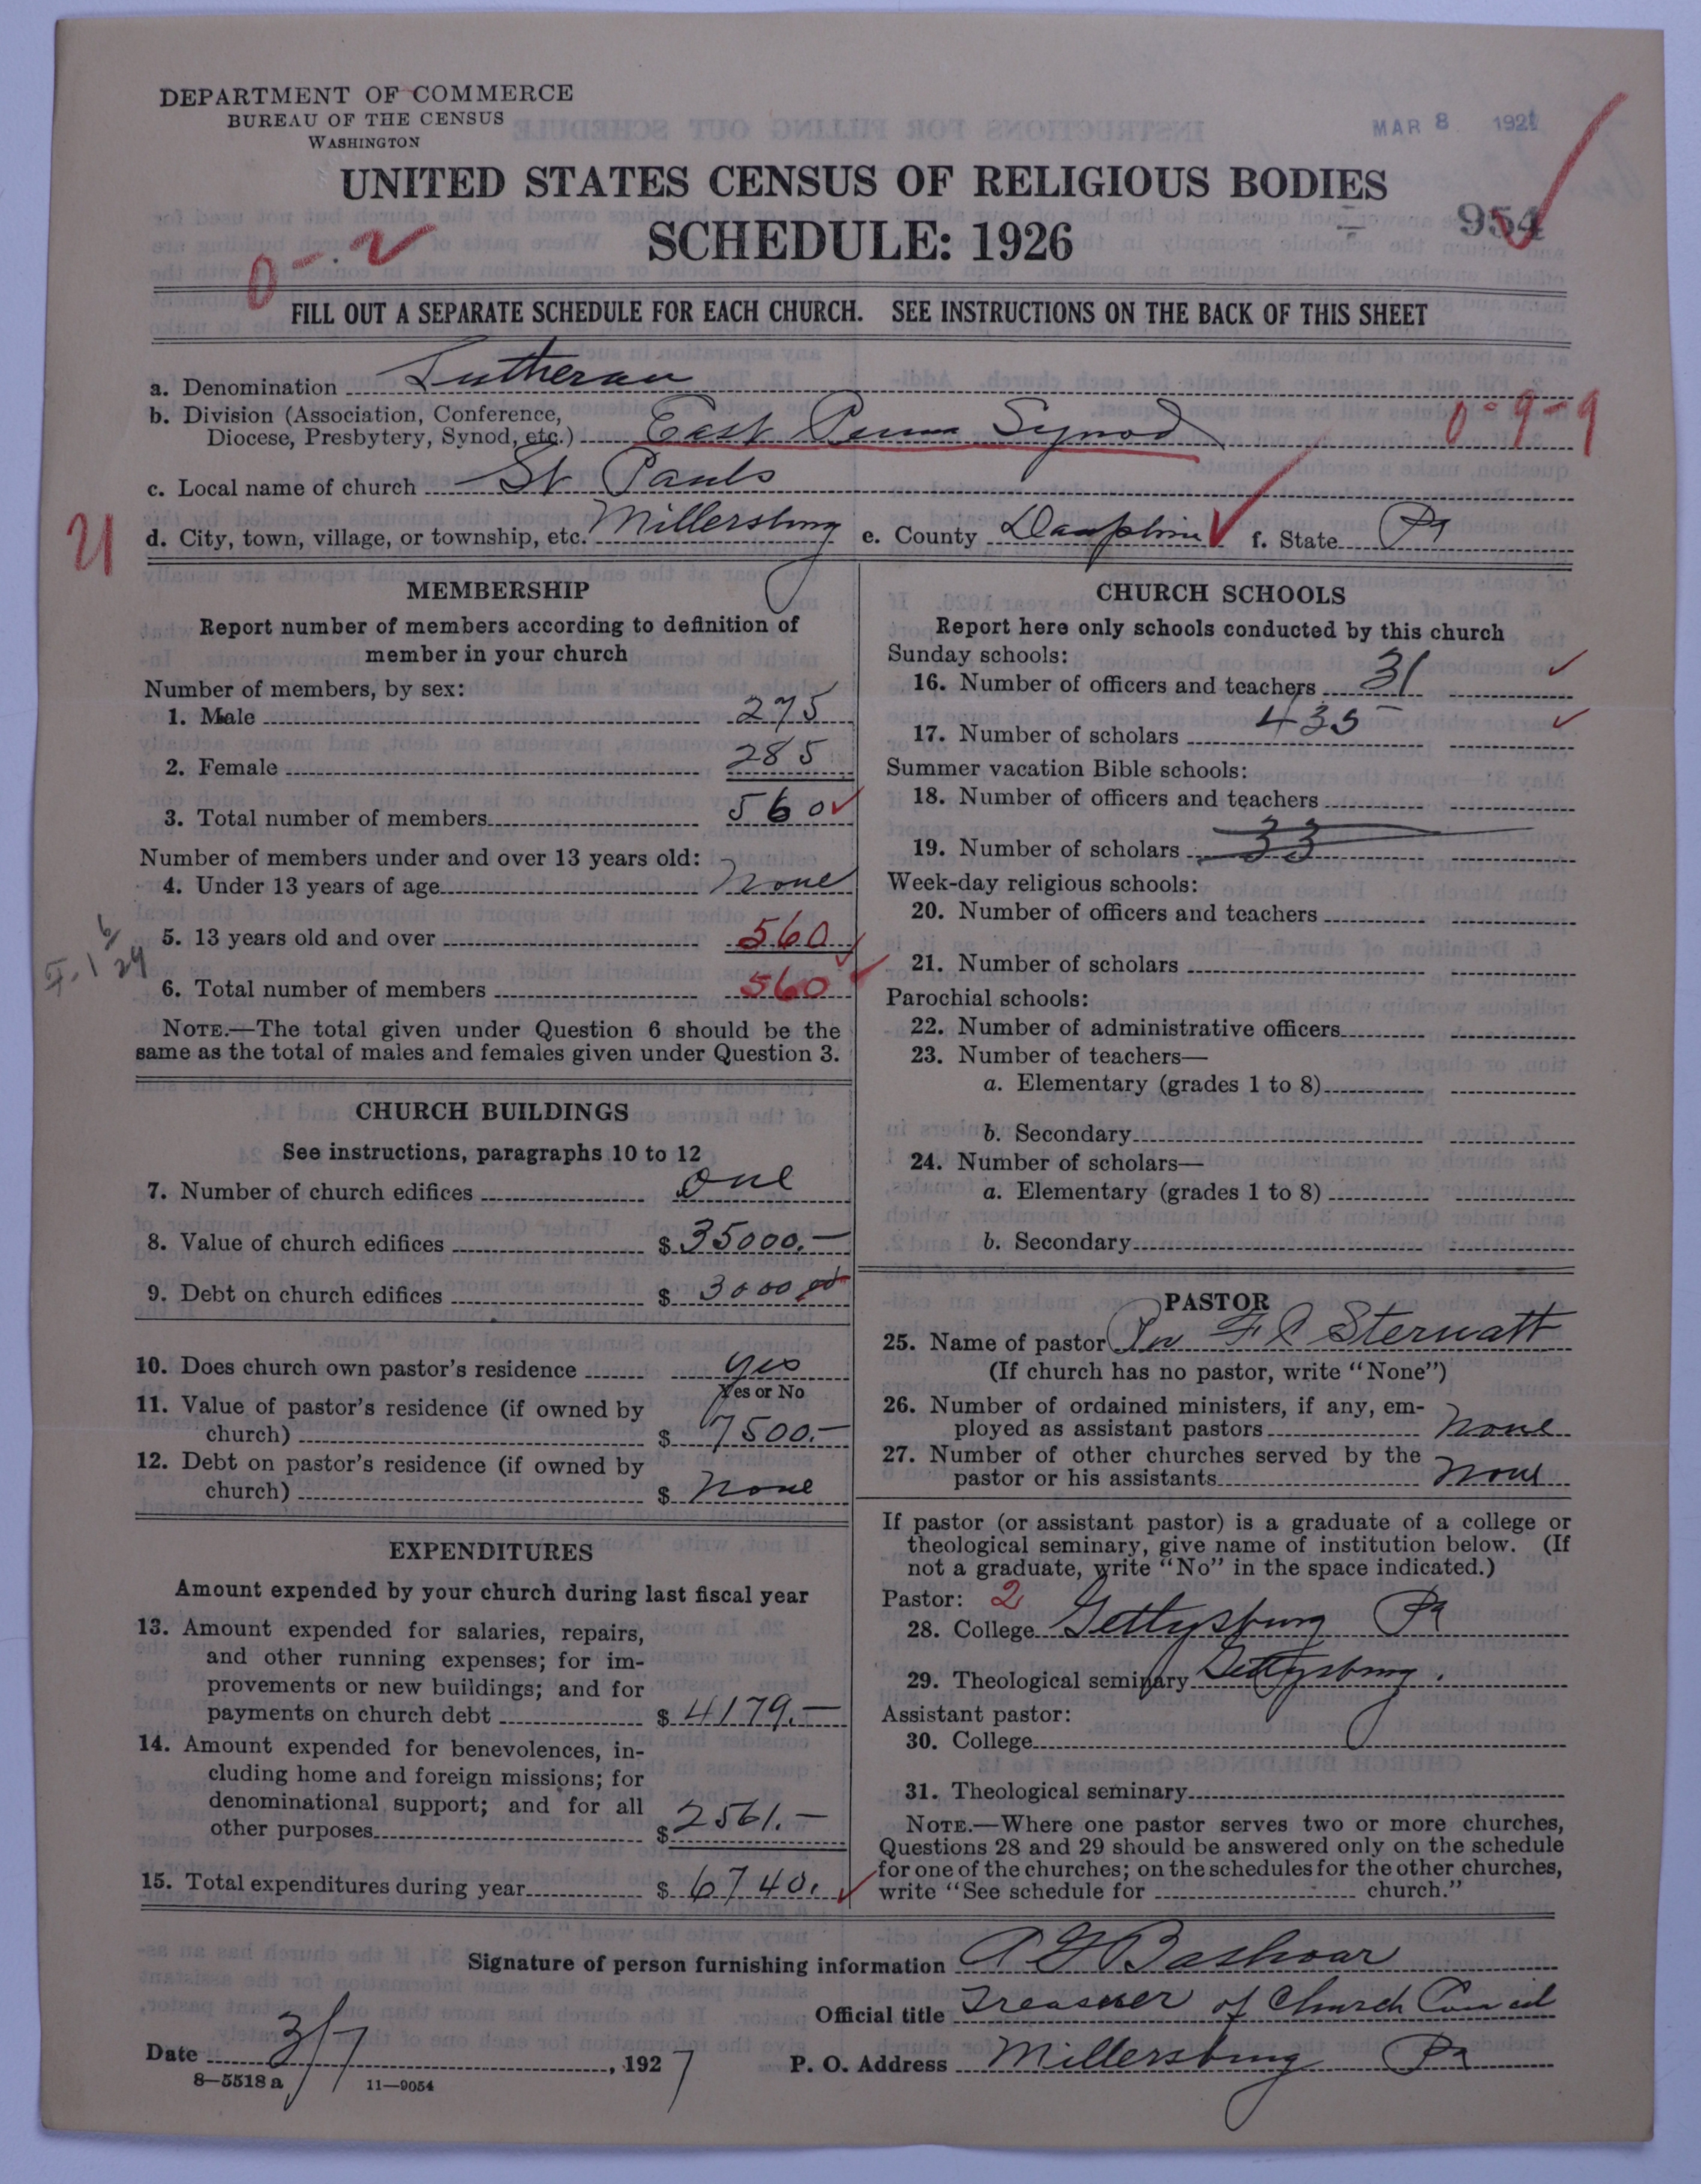 DEPARTMENT OF COMMERCE
BUREAU OF THE CENSUS
WASHINGTON
MAR 8 192
UNITED STATES CENSUS OF RELIGIOUS BODIES
SCHEDULE: 1926
954
0-2
FILL OUT A SEPARATE SCHEDULE FOR EACH CHURCH. SEE INSTRUCTIONS ON THE BACK OF THIS SHEET
a. Denomination Lutheran
b. Division (Association, Conference,
Diocese, Presbytery, Synod, etc.) East Penna Synod 0-9-9
c. Local name of church St Pauls
d. City, town, village, or township, etc. Millersburg e. County Dauphin f. State Pa
MEMBERSHIP
Report number of members according to definition of
member in your church
Number of members, by sex:
1. Male 275
2. Female 285
3. Total number of members 560
Number of members under and over 13 years old:
4. Under 13 years of age none
5. 13 years old and over 560
6. Total number of members 560
NOTE.—The total given under Question 6 should be the
same as the total of males and females given under Question 3.
CHURCH BUILDINGS
See instructions, paragraphs 10 to 12
7. Number of church edifices one
8. Value of church edifices $ 35000.—
9. Debt on church edifices $ 3000
10. Does church own pastor's residence yes
Yes or No
11. Value of pastor's residence (if owned by
church) $ 7500.—
12. Debt on pastor's residence (if owned by
church) $ none
EXPENDITURES
Amount expended by your church during last fiscal year
13. Amount expended for salaries, repairs,
and other running expenses; for im-
provements or new buildings; and for
payments on church debt $ 4179.—
14. Amount expended for benevolences, in-
cluding home and foreign missions; for
denominational support; and for all
other purposes $ 2561.—
15. Total expenditures during year $ 6740.
CHURCH SCHOOLS
Report here only schools conducted by this church
Sunday schools:
16. Number of officers and teachers 31
17. Number of scholars 435
Summer vacation Bible schools:
18. Number of officers and teachers
19. Number of scholars 33
Week-day religious schools:
20. Number of officers and teachers
21. Number of scholars
Parochial schools:
22. Number of administrative officers
23. Number of teachers—
a. Elementary (grades 1 to 8)
b. Secondary
24. Number of scholars—
a. Elementary (grades 1 to 8)
b. Secondary
PASTOR
25. Name of pastor F C Sternatt
(If church has no pastor, write "None")
26. Number of ordained ministers, if any, em-
ployed as assistant pastors none
27. Number of other churches served by the
pastor or his assistants none
If pastor (or assistant pastor) is a graduate of a college or
theological seminary, give name of institution below. (If
not a graduate, write "No" in the space indicated.)
Pastor: 2
28. College Gettysburg Pa
29. Theological seminary Gettysburg.
Assistant pastor:
30. College
31. Theological seminary
NOTE.—Where one pastor serves two or more churches,
Questions 28 and 29 should be answered only on the schedule
for one of the churches; on the schedules for the other churches,
write "See schedule for church."
Signature of person furnishing information Bashoar
Official title Treasurer of Church Council
Date 3/7, 1927 P. O. Address Millersburg Pa
8—5518 a 11—9054